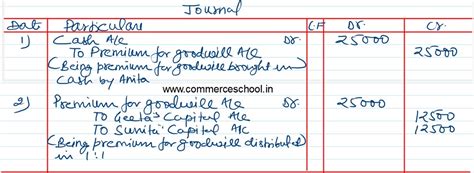 Journal
Date Particulars L.F Dr. Cr.
1) Cash A/c Dr. 25000
To Premium for goodwill A/c 25000
(Being premium for goodwill brought in
cash by Anita
www.commerceschool.in
2) Premium for goodwill A/c Dr. 25000
To Geeta's Capital A/c 12500
To Sunita' Capital A/c 12500
(Being premium for goodwill distributed
in 1:1